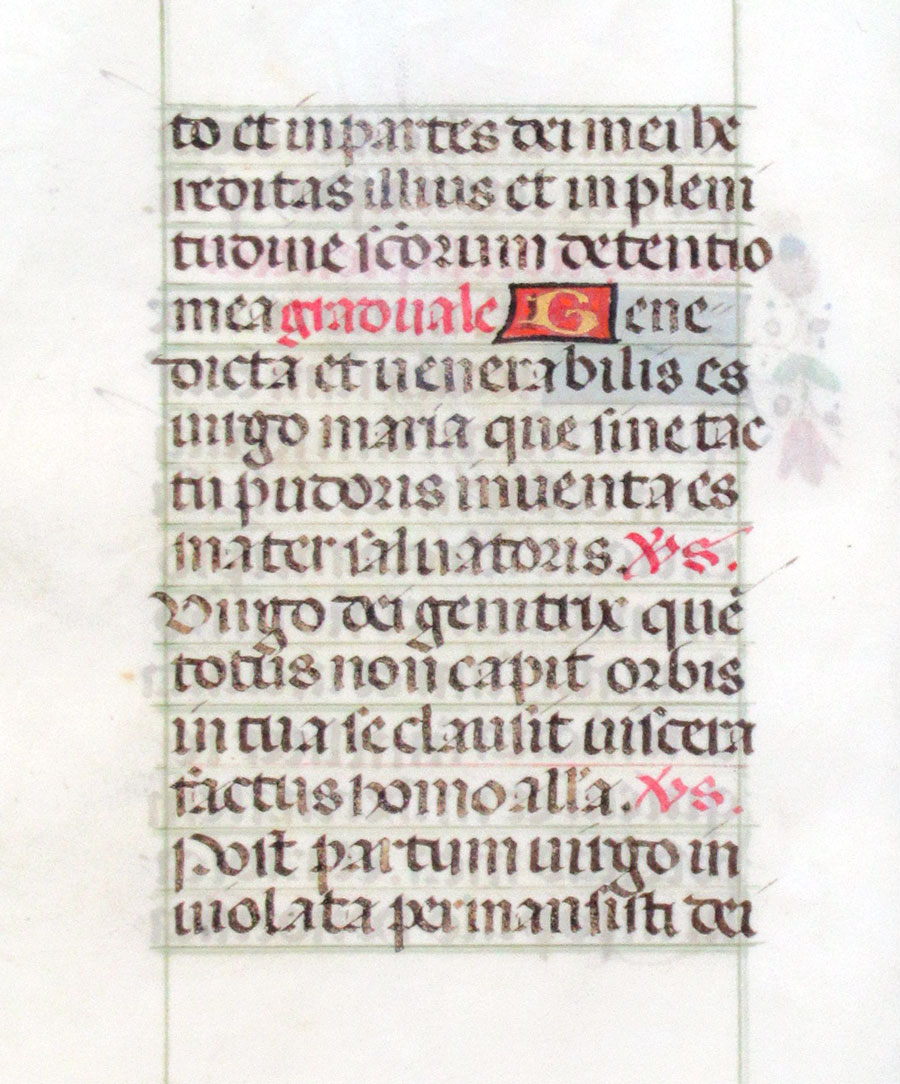 to et in partes dei mei he
reditas illius et in pleni
tudine scōrum detentio
mea graduale Gene
dicta et uenerabilis es
uirgo maria que sine tac
tu pudoris inuenta es
mater saluatoris. Xvs.
Virgo dei genitrix quē
totus non capit orbis
in tua se clausit uiscera
factus homo alla. Xvs.
Post partum uirgo in
uiolata permansisti dei